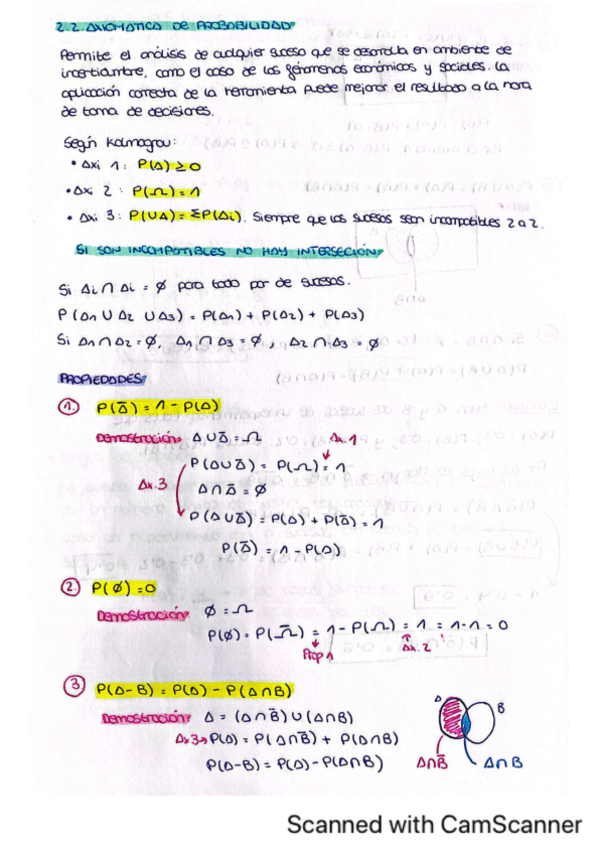 2.2. AXIOMATICA DE PROBABILIDAD
Permite el análisis de cualquier suceso que se desarrolla en ambiente de
incertidumbre, como el caso de los fenómenos económicos y sociales. La
aplicación correcta de la herramienta puede mejorar el resultado a la hora
de toma de decisiones.
Según Kolmogrou:
• Axi 1: P(A) ≥ 0
• Axi 2: P(Ω) = 1
• Axi 3: P(UA) = ΣP(Ai). Siempre que los sucesos sean incompatibles 2 a 2.
SI SON INCOMPATIBLES NO HAY INTERSECIÓN
Si Ai ∩ Ai = ∅ para todo par de sucesos.
P(A1 ∪ A2 ∪ A3) = P(A1) + P(A2) + P(A3)
Si A1 ∩ A2 = ∅, A1 ∩ A3 = ∅, A2 ∩ A3 = ∅
PROPIEDADES
1. P(Ā) = 1 - P(A)
Demostración A ∪ Ā = Ω
Ax 1
P(A ∪ Ā) = P(Ω) = 1
Ax. 3
A ∩ Ā = ∅
P(A ∪ Ā) = P(A) + P(Ā) = 1
P(Ā) = 1 - P(A)
2. P(∅) = 0
Demostración ∅ = Ω
P(∅) = P(Ω̄) = 1 - P(Ω) = 1 = 1 - 1 = 0
Prop 1
Ax. 2
3 P(A - B) = P(A) - P(A ∩ B)
Demostración A = (A ∩ B̄) ∪ (A ∩ B)
A B
Ax 3 → P(A) = P(A ∩ B̄) + P(A ∩ B)
P(A - B) = P(A) - P(A ∩ B)
A ∩ B̄ A ∩ B
Scanned with CamScanner